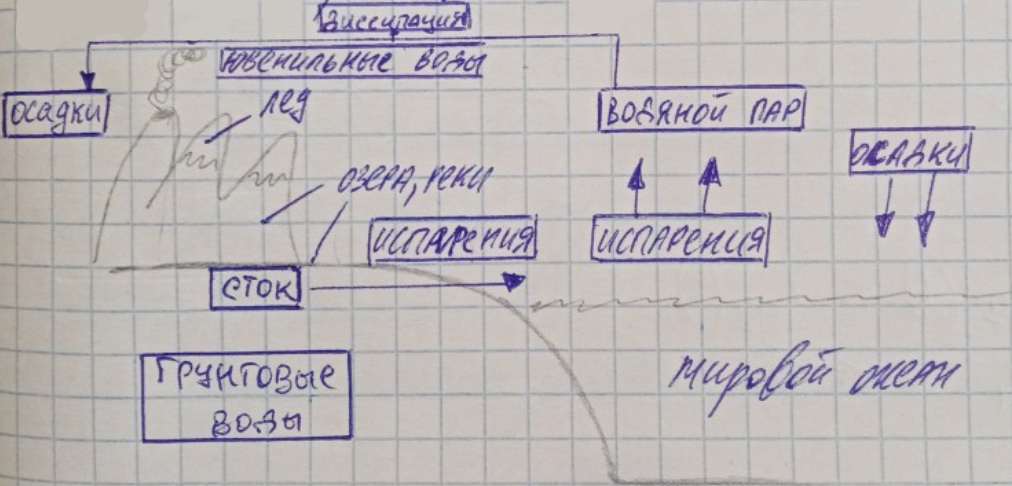 Диссипация
Ювенильные воды
осадки
лед
водяной пар
осадки
озера, реки
испарения
испарения
сток
Грунтовые
воды
Мировой океан